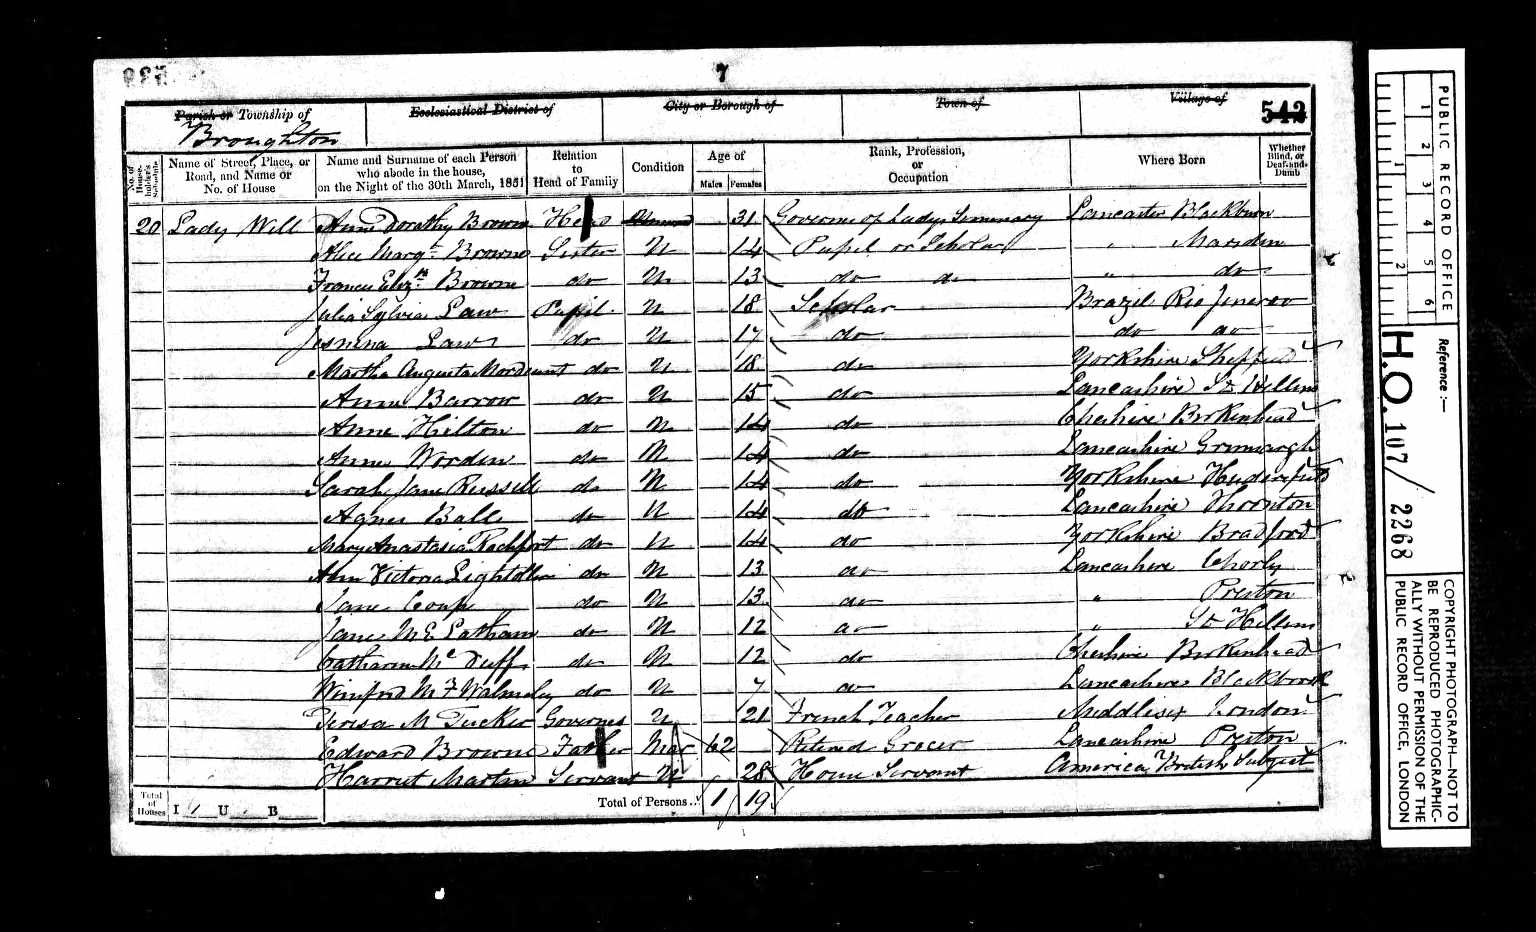 7
Parish or Township of Ecclesiastical District of City or Borough of Town of Village of 542
Broughton
No. of House-holder's Schedule Name of Street, Place, or Road, and Name or No. of House Name and Surname of each Person who abode in the house, on the Night of the 30th March, 1851 Relation to Head of Family Condition Age of Males Females Rank, Profession, or Occupation Where Born Whether Blind, or Deaf-and-Dumb
20 Lady Well Anne Dorothy Browne Head 31 Governe of Ladys Seminary Lancaster Blackburn
Alice Margt Browne Sister U 14 Pupil or Scholar " Marsden
Frances Elizth Browne do U 13 do do " do
Julia Sylvia Law Pupil U 18 Scholar Brazil Rio Jenerov
Law do U 17 do do do
Martha Augusta Mordaunt do U 18 do Yorkshire Sheffield
Anne Barrow do U 15 do Lancashire St Hellens
Anne Hilton do U 14 do Cheshire Birkenhead
Anne Worden do U 14 do Lancashire Grimsargh
Sarah Jane Russell do U 14 do Yorkshire Hudersfield
Agnes Ball do U 14 do Lancashire Thornton
Mary Anastasia Rochfort do U 14 do Yorkshire Bradford
Ann Victoria Lightoller do U 13 do Lancashire Chorly
Jane Coup do U 13 do " Preston
Jane M E Latham do U 12 do " St Hellens
Catharine Mc Duff do U 12 do Cheshire Birkenhead
Winifrid M F Walmsley do U 7 do Lancashire Blackbrook
Teresa M Tucker Governes U 21 French Teacher Middlesex London
Edward Browne Father Mar 62 Retired Grocer Lancashire Preston
Harriet Martin Servant U 28 House Servant America British Subject
Total of Houses I 1 U B Total of Persons 1 19
PUBLIC RECORD OFFICE
1 2 3 4 5 6
1 2
Reference :-
H.O. 107/2268
COPYRIGHT PHOTOGRAPH—NOT TO
BE REPRODUCED PHOTOGRAPHIC-
ALLY WITHOUT PERMISSION OF THE
PUBLIC RECORD OFFICE, LONDON